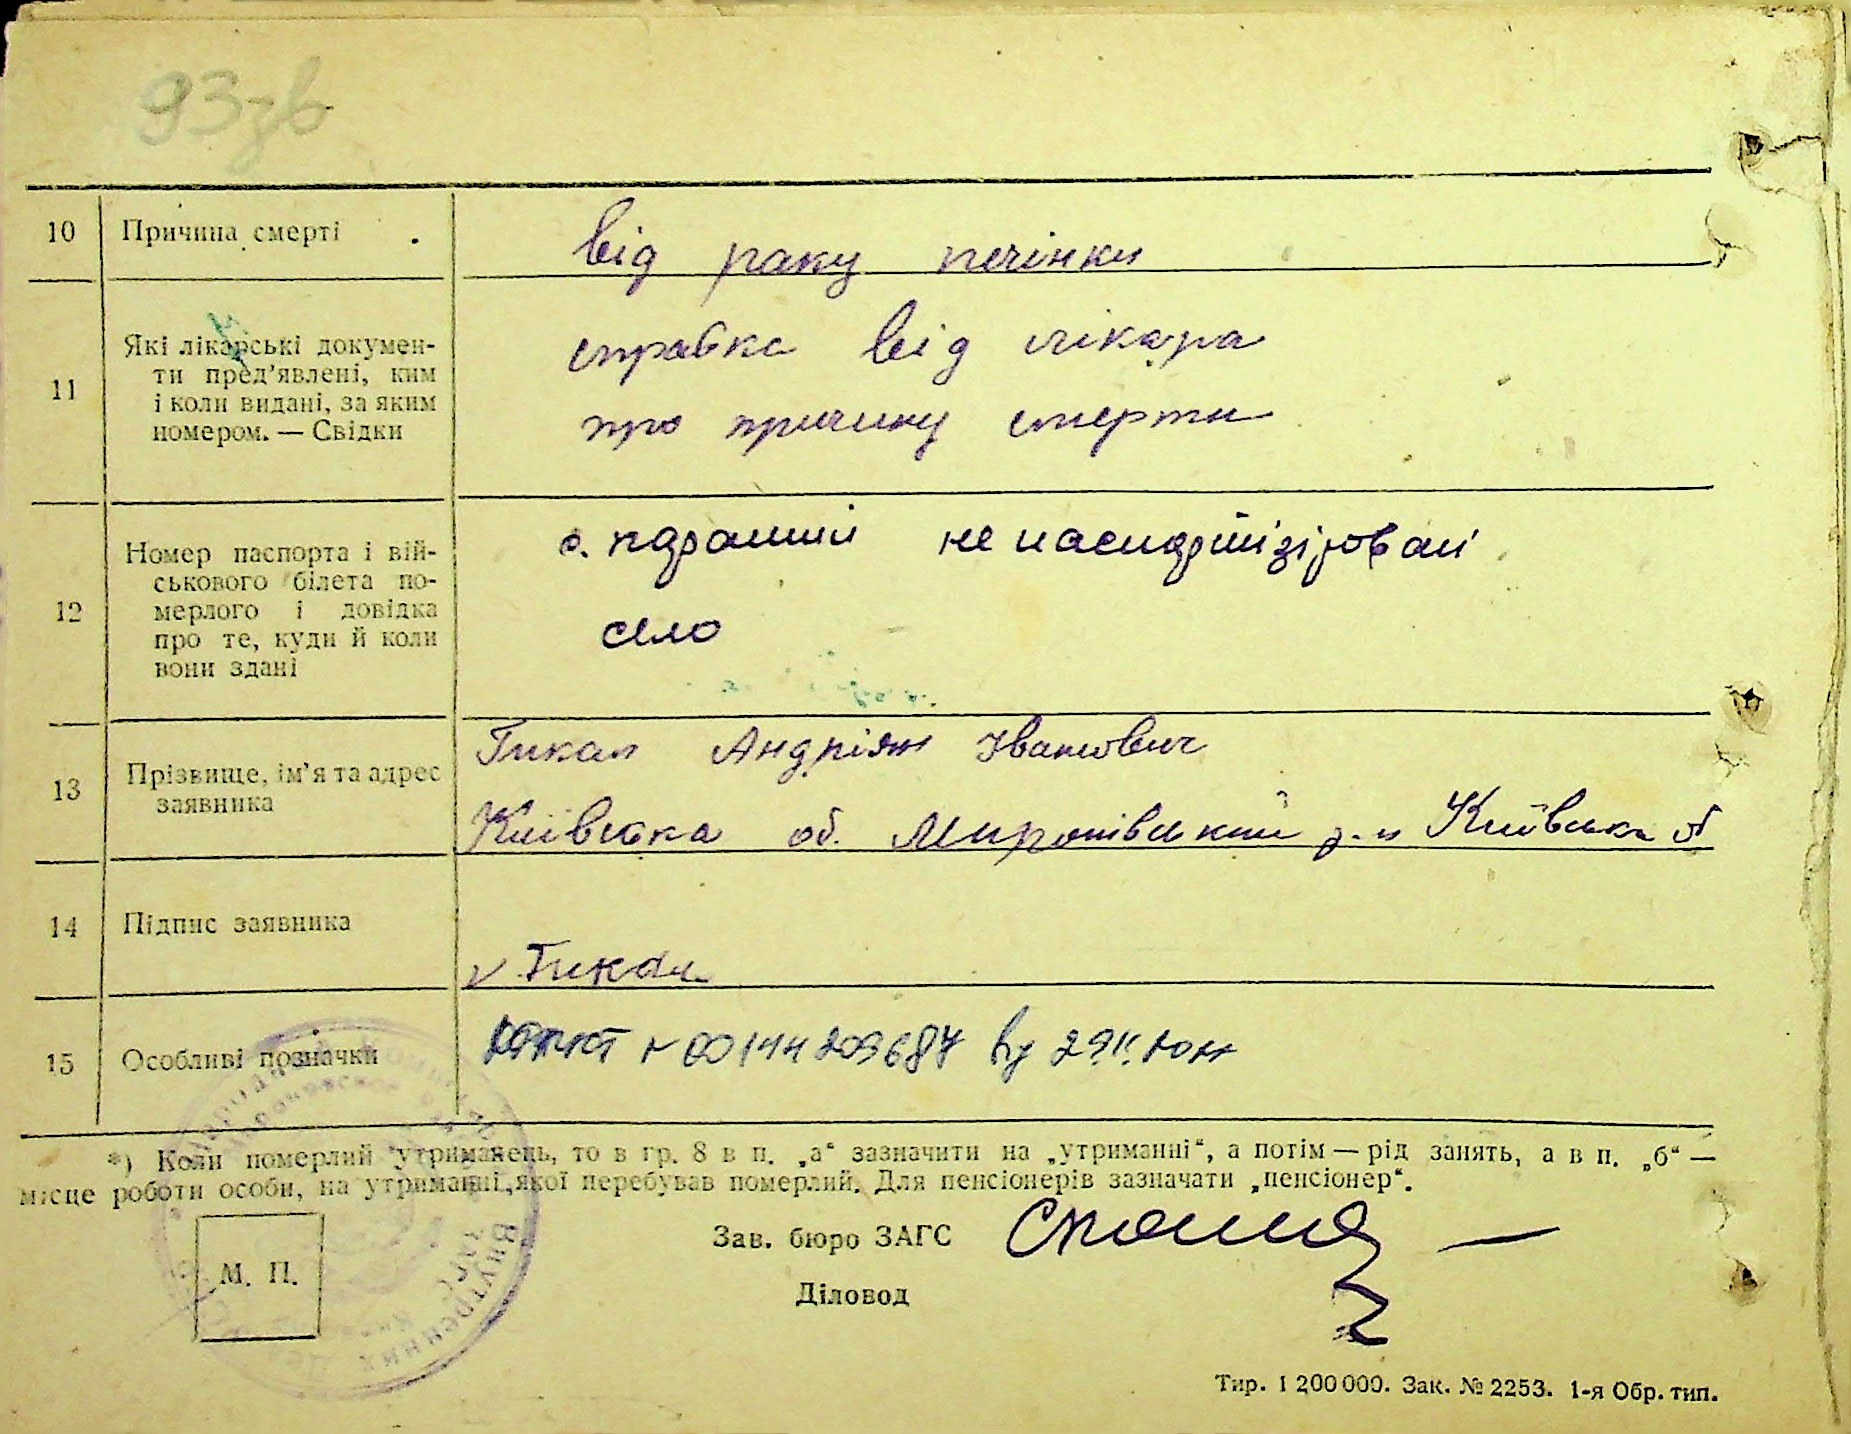 93зв
10 Причина смерті
від раку печінки
11 Які лікарські докумен-
ти пред'явлені, ким
і коли видані, за яким
номером. — Свідки
справка від лікаря
про причину смерти
12 Номер паспорта і вій-
ськового білета по-
мерлого і довідка
про те, куди й коли
вони здані
не
село
13 Прізвище, ім'я та адрес
заявника
Гикал Андріян Іванович
Київська об. Миронівський р-н Київська об
14 Підпис заявника
v Гикал
15 Особливі позначки
N 00144209687
*) Коли померлий утриманець, то в гр. 8 в п. „а“ зазначити на „утриманні“, а потім — рід занять, а в п. „б“ —
місце роботи особи, на утриманні якої перебував померлий. Для пенсіонерів зазначати „пенсіонер“.
Зав. бюро ЗАГС
М. П.
Діловод
Внутренних Дел
ЗАГС
Тир. 1 200 000. Зак. № 2253. 1-я Обр. тип.